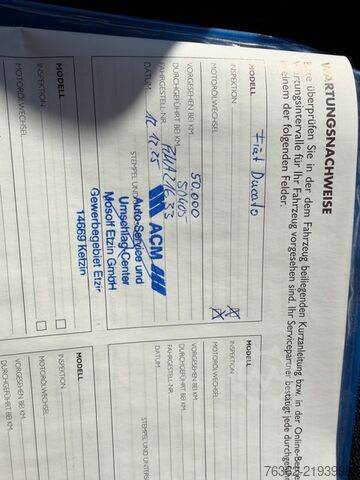 WARTUNGSNACHWEISE
Bitte überprüfen Sie in der dem Fahrzeug beiliegenden Kurzanleitung bzw. in der Online-Be
Wartungsintervalle für Ihr Fahrzeug vorgesehen sind. Ihr Servicepartner bestätigt jede durchge
einem der folgenden Felder.
MODELL Fiat Ducato
INSPEKTION
MOTORÖLWECHSEL
VORGESEHEN BEI KM. 50.000
DURCHGEFÜHRT BEI KM.
FAHRGESTELL-NR.
DATUM
STEMPEL UND
ACM
Auto-Service und
Umschlag-Center
Mosolf Etzin GmbH
Gewerbegebiet Etzin
14669 Ketzin
MODELL
INSPEKTION
MOTORÖLWECHSEL
VORGESEHEN BEI KM.
DURCHGEFÜHRT BEI KM.
FAHRGESTELL-NR.
DATUM
STEMPEL UND UNTERS
MODELL
INSPEKTION
MOTORÖLWECHSEL
MODELL
INSPEKTION
MOTORÖLWECHSEL
VORGESEHEN BEI KM.
DURCHGEFÜHRT BEI KM.